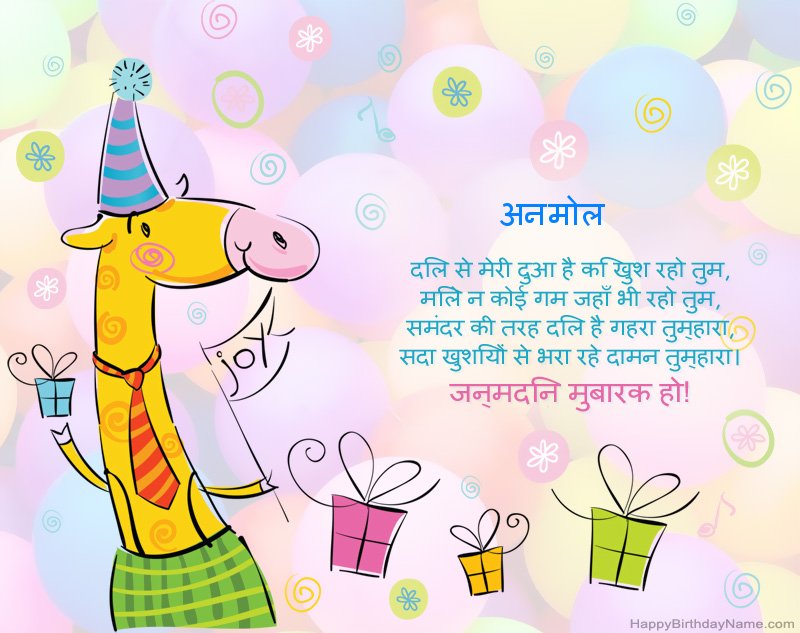 अनमोल
दिल से मेरी दुआ है कि खुश रहो तुम,
मिले न कोई गम जहाँ भी रहो तुम,
समंदर की तरह दिल है गहरा तुम्हारा,
सदा खुशियों से भरा रहे दामन तुम्हारा।
जन्मदिन मुबारक हो!
joy
HappyBirthdayName.com